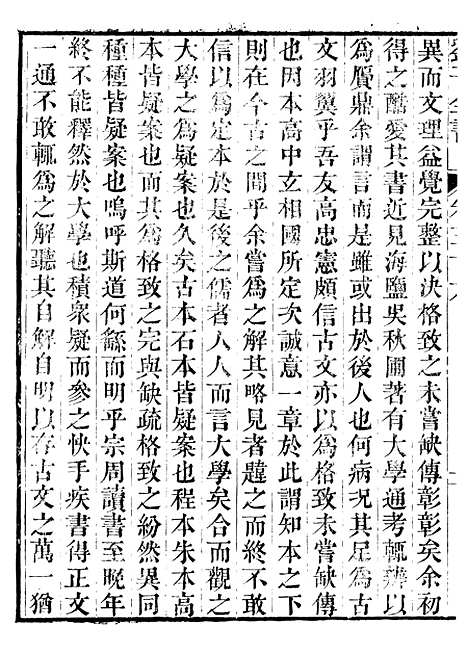 異而文理益覺完整以決格致之未嘗缺傳彰彰矣余初
得之酷愛其書近見海鹽吳秋圃著有大學通考輒辨以
爲贋鼎余謂言而是雖或出於後人也何病况其足爲古
文羽翼乎吾友高忠憲頗信古文亦以爲格致未嘗缺傳
也因本高中玄相國所定次誠意一章於此謂知本之下
則在今古之間乎余嘗爲之解其略見者韙之而終不敢
信以爲定本於是後之儒者人人而言大學矣合而觀之
大學之爲疑案也久矣古本石本皆疑案也程本朱本高
本皆疑案也而其爲格致之完與缺疏格致之紛然異同
種種皆疑案也嗚呼斯道何繇而明乎宗周讀書至晚年
終不能釋然於大學也積衆疑而參之快手疾書得正文
一通不敢輒爲之解聽其自解自明以存古文之萬一猶